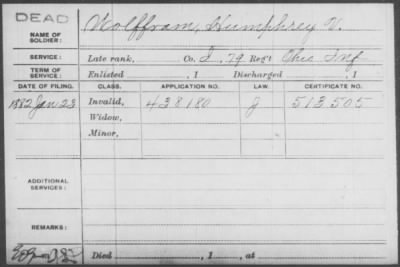 DEAD
NAME OF SOLDIER: Wolffram, Humphrey V.
SERVICE: Late rank, Co. I, 79 Reg't Ohio Inf
TERM OF SERVICE: Enlisted , 1 Discharged , 1
DATE OF FILING. CLASS. APPLICATION NO. LAW. CERTIFICATE NO.
1882 Jan 23 Invalid, 438180 J 513505
Widow,
Minor,
ADDITIONAL SERVICES:
REMARKS:
Died , 1 , at